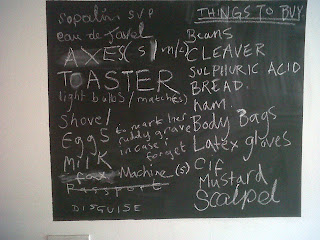 sopalin SVP
eau de Javel
AXES (s/m/l)
TOASTER
light bulbs/matches
Shovel
Eggs to mark her muddy grave in case i forget
Milk
fax Machine (s)
Passport
DISGUISE
THINGS TO BUY
Beans
CLEAVER
SULPHURIC ACID
BREAD.
ham.
Body Bags
Latex gloves
Cif
Mustard
Scalpel